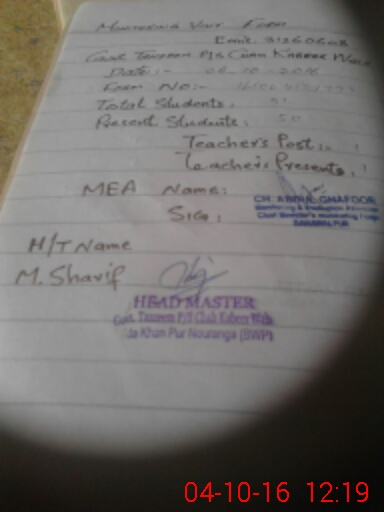 Monitoring Visit Form
Emis: 31260608
Govt Tazeem P/S Chah Kabeer Wala
Date:- 04-10-2016
Form No:-
Total Students:
Present Students: 50
Teacher's Post:. 1
Teacher's Presents. 1
MEA Name:
CH. ABDUL GHAFOOR
Monitoring & Evaluation Assistant
Chief Minister's Monitoring Force
BAHAWALPUR
Sig:
H/T Name
M. Sharif
HEAD MASTER
Govt. Tazeem P/S Chah Kabeer Wala
Khan Pur Nouranga (BWP)
04-10-16 12:19